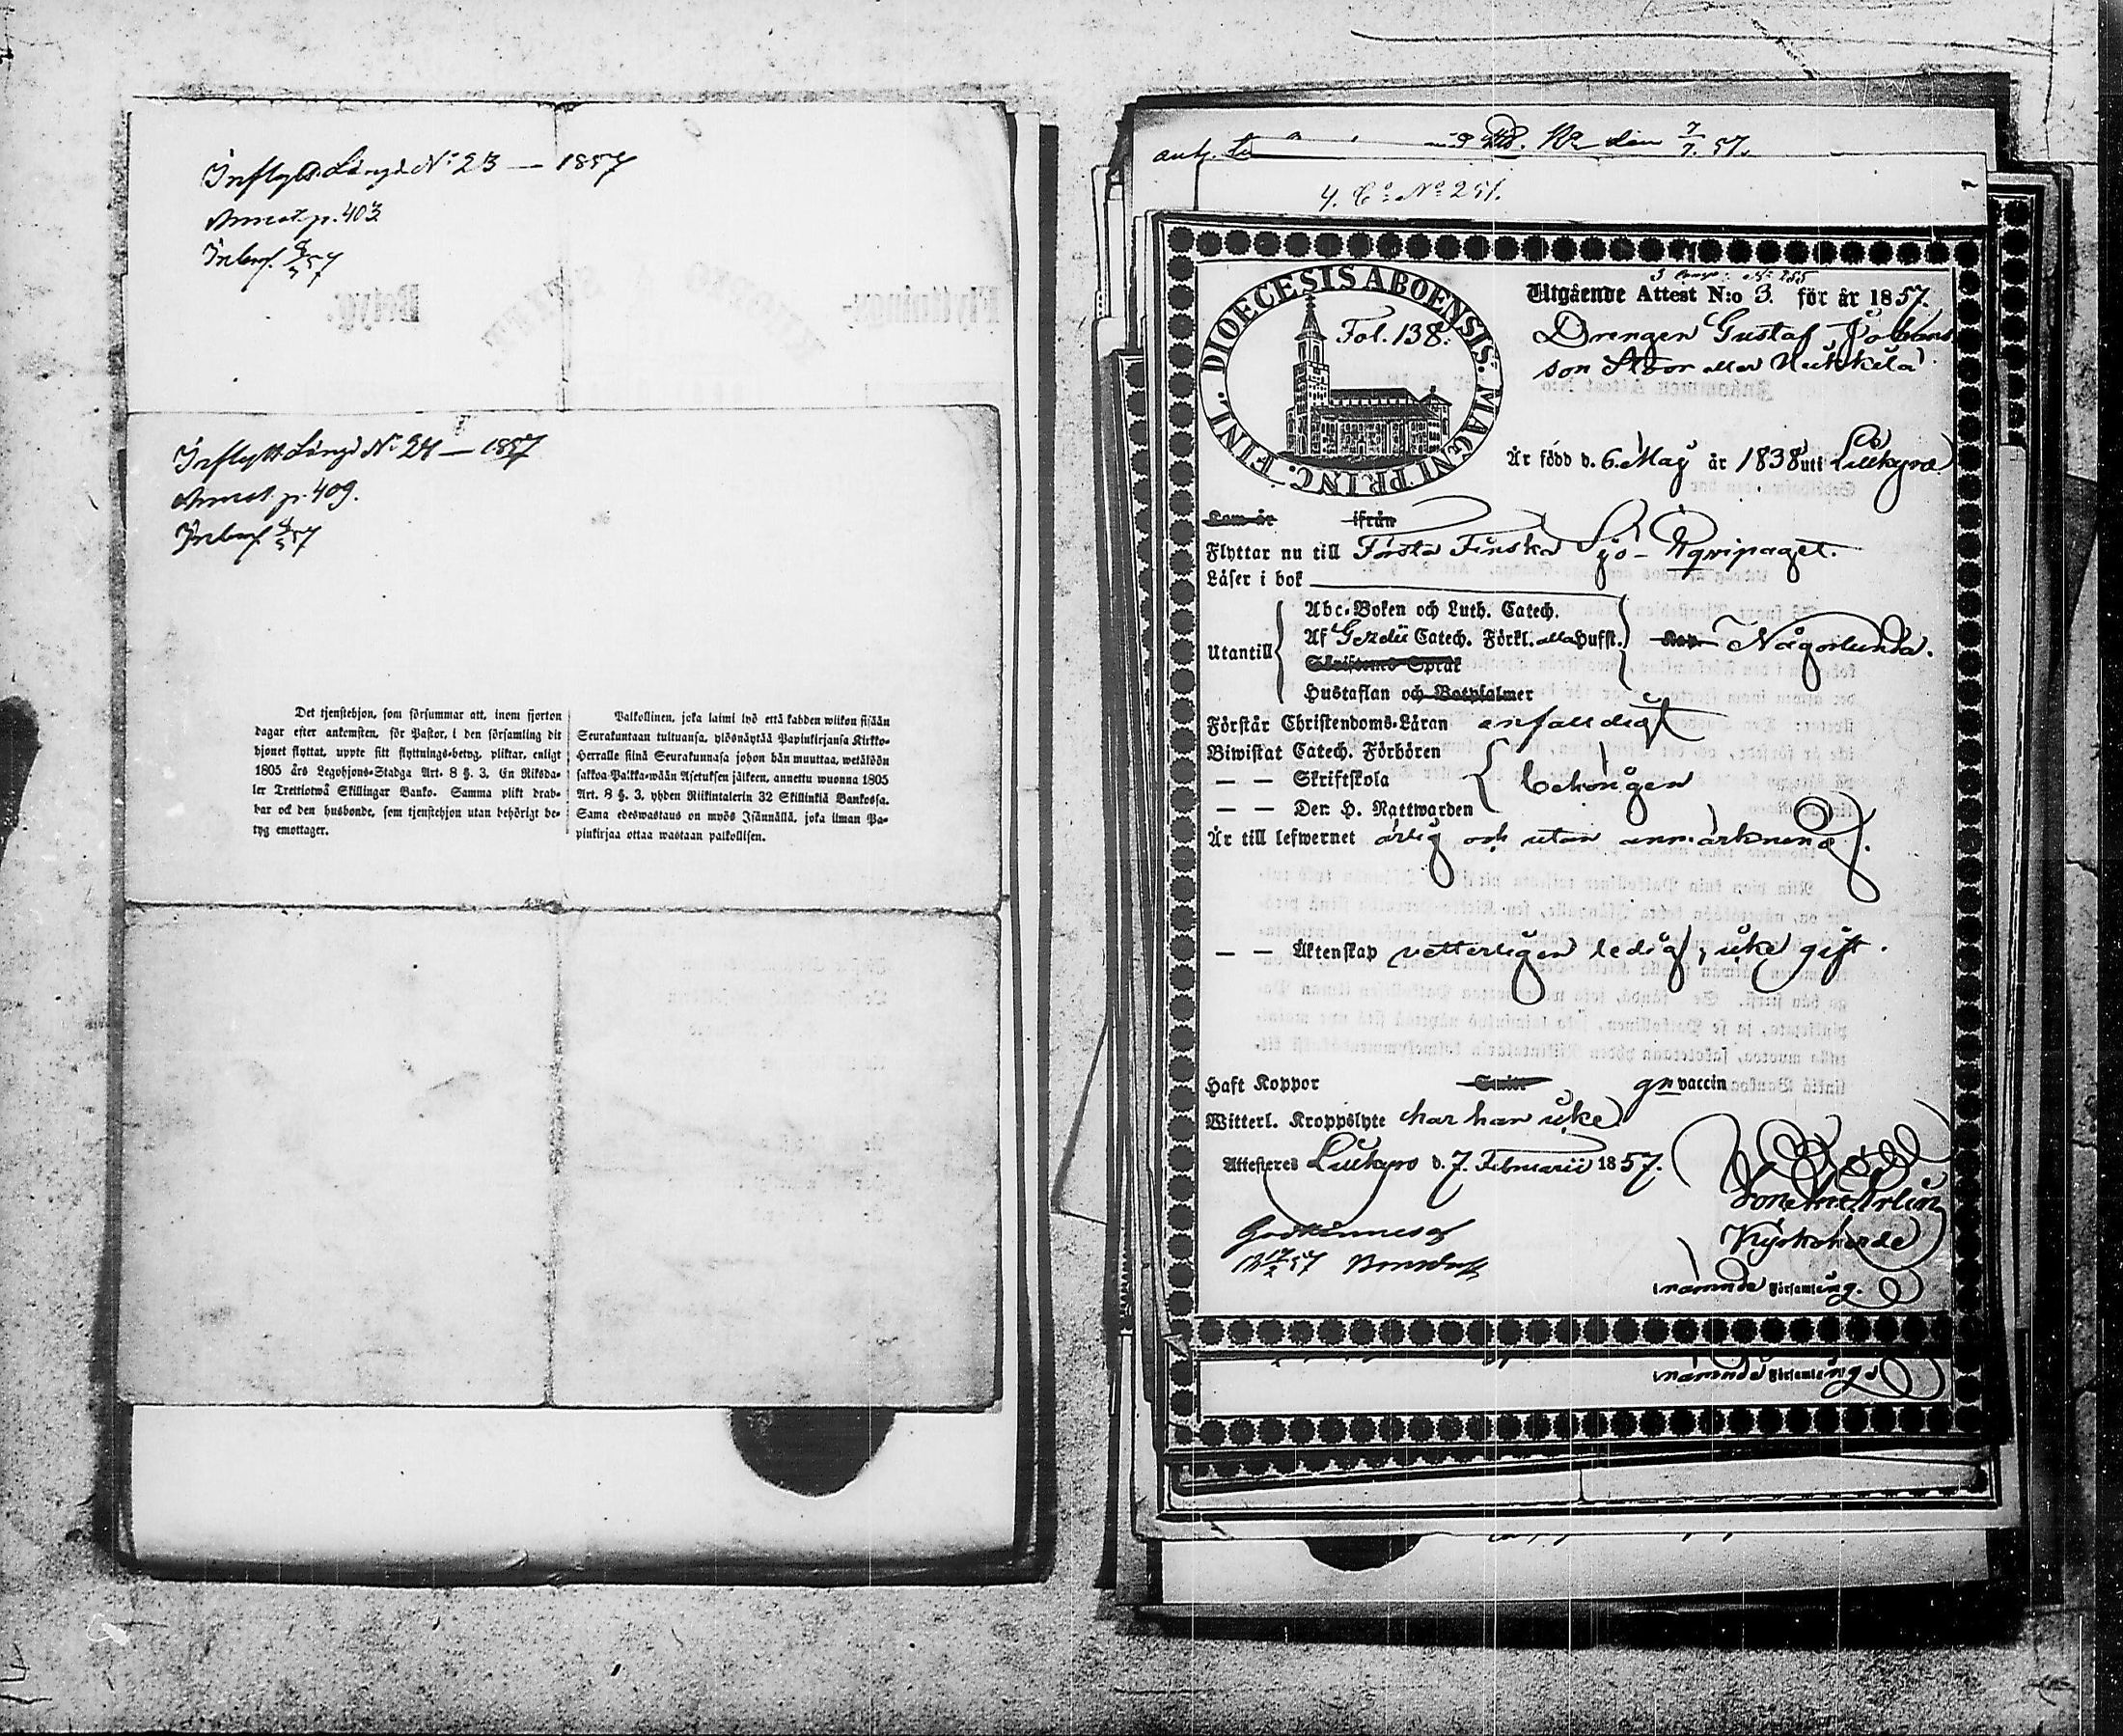 Inflytt Längd No 23 — 1857
Annot. p. 403
Flyttnings-
Betyg.
Inflytt Längd No 24 — 1857
Annot. p. 409.
Det tjenstehjon, som försummar att, inom fjorton
dagar efter ankomsten, för Pastor, i den församling dit
hjonet flyttat, uppte sitt flyttnings-betyg, pliktar, enligt
1805 års Legohjons-Stadga Art. 8 §. 3. En Riksda-
ler Trettiotwå Skillingar Banko. Samma plikt drab-
bar ock den husbonde, som tjenstehjon utan behörigt be-
tyg emottager.
Palkollinen, joka laimi lyö että kahden wiikon sisään
Seurakuntaan tultuansa, ylösnäyttää Papinkirjansa Kirkko-
Herralle siinä Seurakunnasa johon hän muuttaa, wetäköön
sakkoa Palkka-wään Asetuksen jälkeen, annettu wuonna 1805
Art. 8 §. 3, yhden Riikintalerin 32 Skillinkiä Bankossa.
Sama edeswastaus on myös Isännällä, joka ilman Pa-
pinkirjaa ottaa wastaan palkollisen.
den 7/7. 57.
4. Co No 251.
3 Comp: No 255
DIOECESIS ABOENSIS. MAGNI PRINC. FINL.
Fol. 138.
Utgående Attest N:o 3. för år 1857.
Drengen Gustaf Johans
son Stoor eller Heikkilä
Är född d. 6. Maij år 1838 uti Lillkyro
Kom år ifrån
Flyttar nu till Första Finska Sjö-Eqvipaget.
Läser i bok
Utantill
Abc-Boken och Luth. Catech.
Af Gezelii Catech. Förkl. alla Hufst.
Skriftens Språk
Hustaflan och Botpsalmer
Någorlunda.
Förstår Christendoms-Läran enfaldigt
Biwistat Catech. Förhören
— — Skriftskola
— — Den H. Nattwarden
behörigen
Är till lefwernet ärlig och utan anmärkning.
— — Äktenskap vetterligen ledig, icke gift.
Haft Koppor vaccin
Witterl. Kroppslyte har han icke
Attesteras Lillkyro d. 7. Februarii 1857.
Kyrkoherde
i nämnde Församling.
Godkännes af
i nämnde Församling